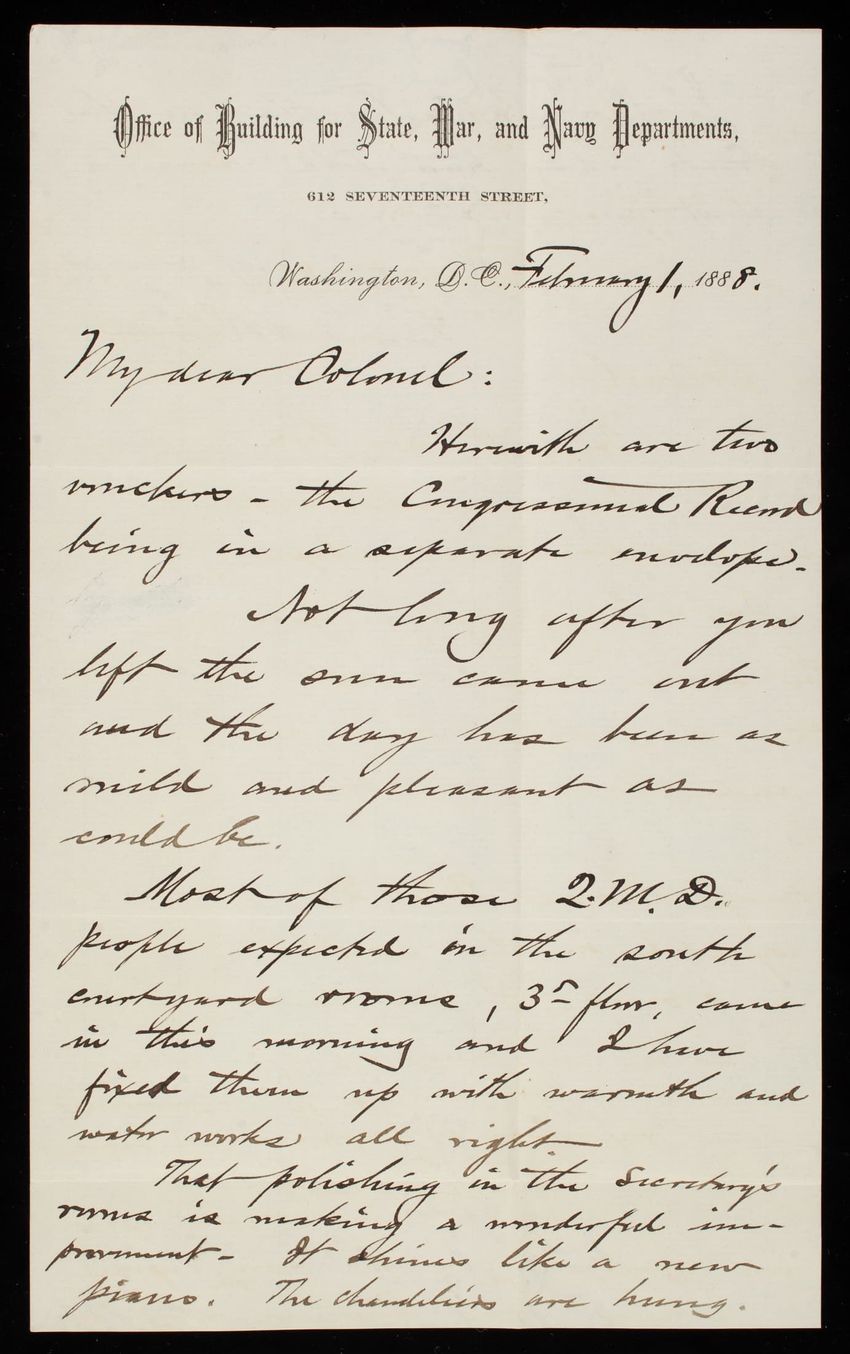 Office of Building for State, War, and Navy Departments,
612 SEVENTEENTH STREET,
Washington, D.C., February 1, 1888.
My dear Colonel:
Herewith are two
vouchers - the Congressional Record
being in a separate envelope.
Not long after you
left the sun came out
and the day has been as
mild and pleasant as
could be.
Most of those Q.M.D.
people expected in the south
courtyard rooms, 3r floor, came
in this morning and I have
fixed them up with warmth and
water works all right.
That polishing in the Secretary's
rooms is making a wonderful im-
provement - It shines like a new
piano. The chandeliers are hung.